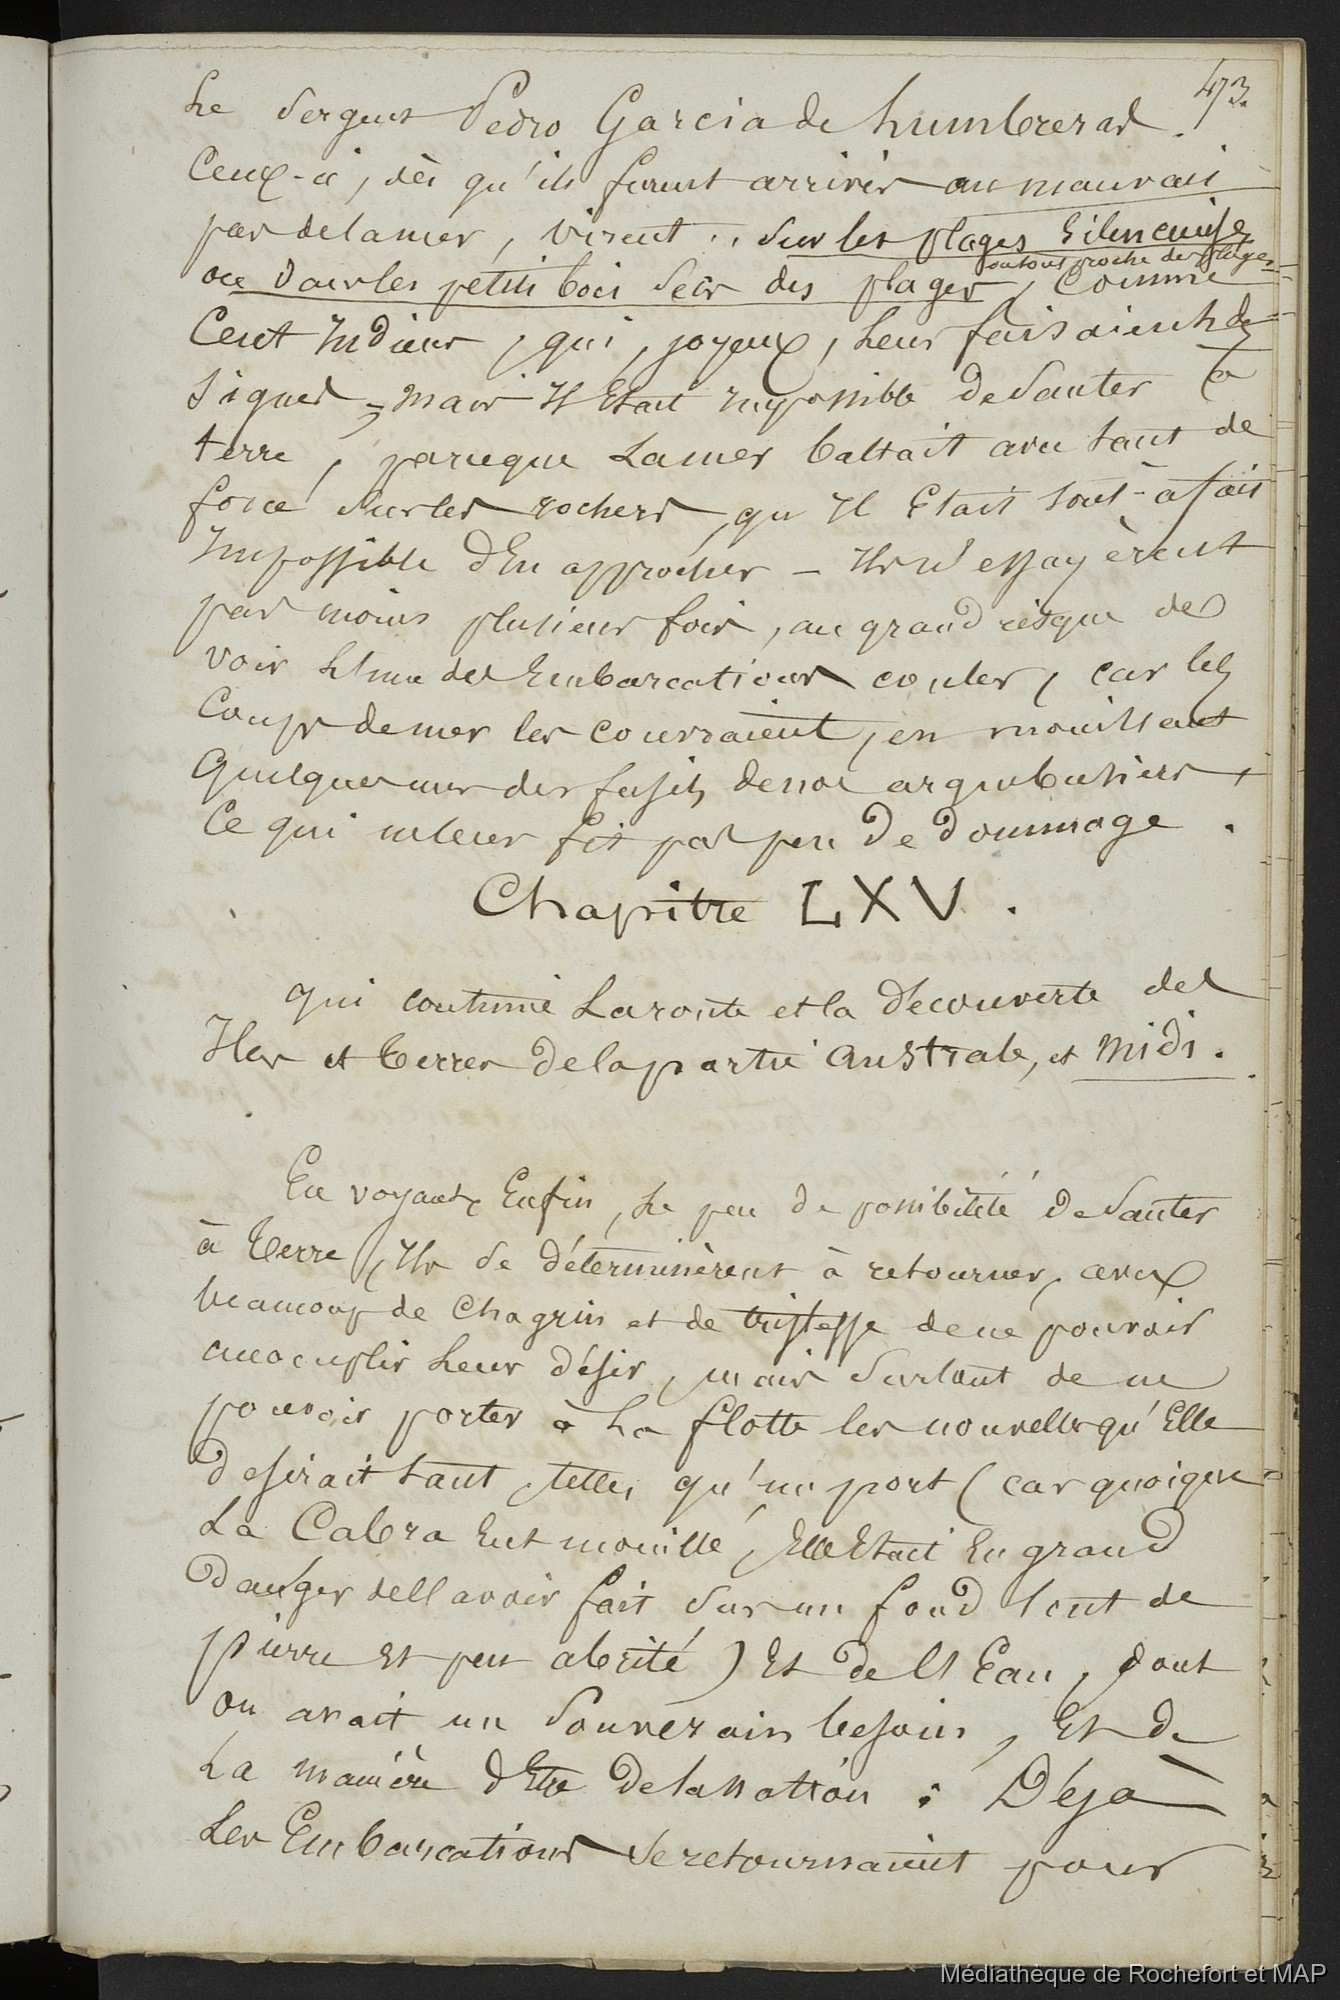 473.
Le Sergent Pedro Garcia de humbreras.
Ceux-ci, dès qu'ils furent arrivés au mauvais
pas de la mer, virent .. Sur les plages
ou tout proche des plages
ou dans les petits bois secs des plages, Comme
Cent Indiens, qui, joyeux, leur faisaient des
Signes - mais Il Etait Impossible de Sauter à
terre, parceque La mer battait avec tant de
force Sur les rochers, qu'Il Etait tout-à-fait
Impossible d'En approcher - Ils l'essayèrent
pas moins plusieurs fois, au grand risque de
voir l'Une des Embarcations couler, car les
Coups de mer les couvraient, en mouillant
Quelques uns des fusils de nos arquebusiers,
Ce qui ne leur fit pas peu De Dommage.
Chapitre LXV.
qui continue La route et la Découverte des
Iles et Terres De la partie Australe, et Midi.
En voyant Enfin, le peu de possibilité De Sauter
à Terre, Ils Se déterminèrent à retourner, avec
beaucoup de Chagrin et de tristesse de ne pouvoir
accomplir Leur désir, mais Surtout de ne
pouvoir porter à La flotte les nouvelles qu'Elle
desirait tant, telles qu'un port (car quoique
La Cabra Eut mouillé, Elle Etait En grand
Danger de l'avoir fait Sur un fond tout de
pierre Et peu abrité) Et de l'Eau, dont
on avait un Souverain besoin, Et de
La manière d'Etre De la Nation : Déjà
Les Embarcations Se retournaient pour
Médiathèque de Rochefort et MAP